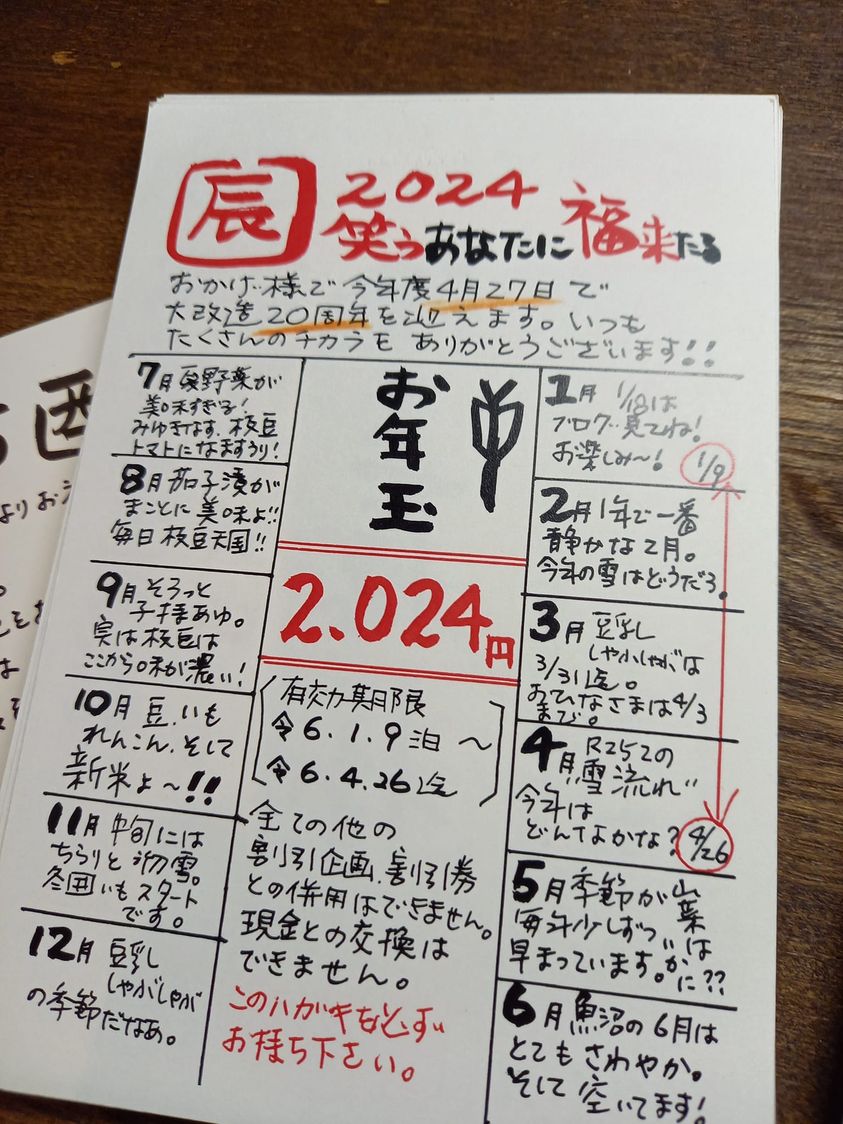 辰
2024
笑うあなたに福来たる
おかげ様で今年度4月27日で
大改造20周年を迎えます。いつも
たくさんのチカラをありがとうございます!!
お年玉
2.024円
有効期限
令6.1.9泊〜
令6.4.26迄
全ての他の
割引企画、割引券
との併用はできません。
現金との交換は
できません。
このハガキを必ず
お持ち下さい。
1月 1/18は
ブログ見てね!
お楽しみ〜!
1/9
2月1年で一番
静かな2月。
今年の雪はどうだろ。
3月 豆乳
しゃぶしゃぶは
3/31迄。
おひなさまは4/3
まで。
4月 R252の
"雪流れ"
今年は
どんなかな?
4/26
5月季節が
毎年少しずつ
早まっています。
山菜
は
か
に??
6月魚沼の6月は
とてもさわやか。
そして空いてます!
7月夏野菜が
美味すぎる!
みゆきなす、枝豆
トマトになますうり!
8月茄子漬が
まことに美味よ!!
毎日枝豆天国!!
9月そろっと
子持あゆ。
実は枝豆は
ここから味が濃い!
10月 豆、いも
れんこん、そして
新米よ〜!!
11月 中旬には
ちらりと初雪。
冬囲いもスタート
です。
12月 豆乳
しゃぶしゃぶ
の季節だなあ。
酉
より